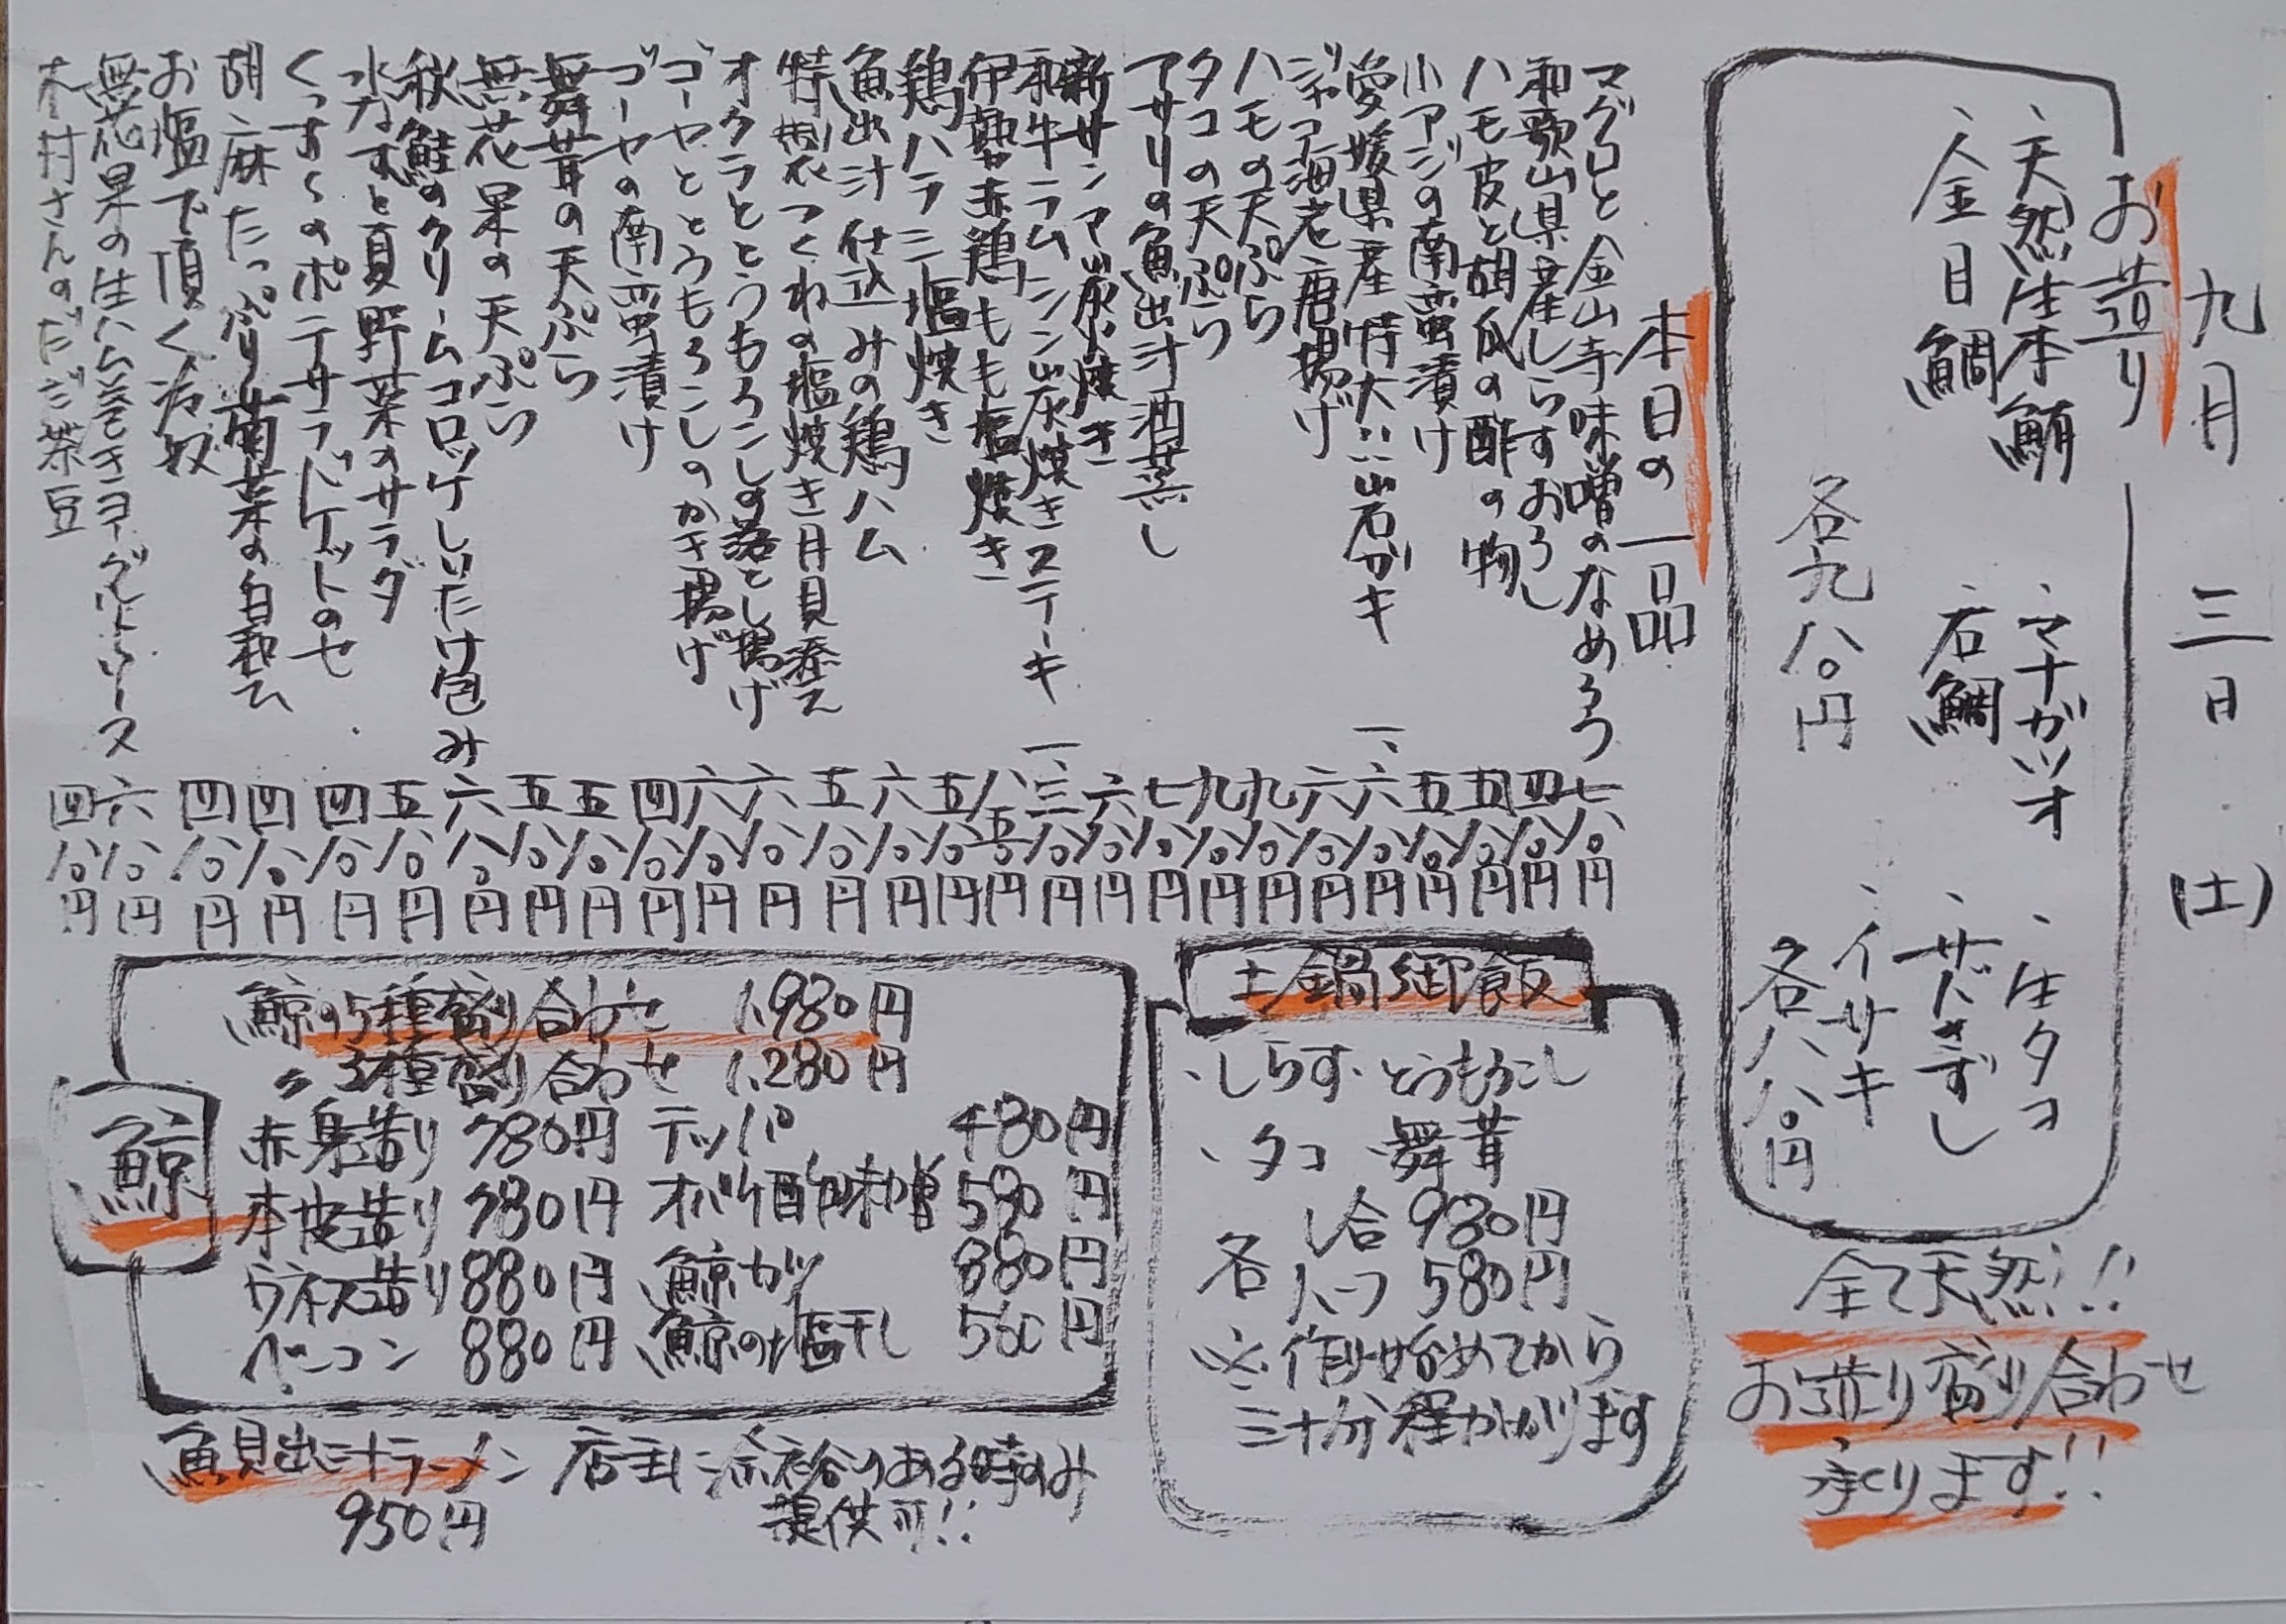 九月三日(土)
お造り
、天然生本鮪 、マナガツオ 、生タコ
、金目鯛 、石鯛 、サバきずし
、イサキ
各九八〇円
各八八〇円
全て天然!!
お造り盛り合わせ
承ります!!
本日の一品
マグロと金山寺味噌のなめろう 七八〇円
和歌山県産しらすおろし 四八〇円
ハモ皮と胡瓜の酢の物 五八〇円
小アジの南蛮漬け 五八〇円
愛媛県産特大!!岩ガキ 一、六八〇円
ジャンボ海老唐揚げ 六八〇円
ハモの天ぷら 九八〇円
タコの天ぷら 九八〇円
アサリの魚出汁酒蒸し 七八〇円
新サンマ炭火焼き 六八〇円
和牛ラムシン炭焼きステーキ 一、三八〇円
伊勢赤鶏もも塩焼き 八五〇円
鶏ハラミ塩焼き 五八〇円
魚出汁仕込みの鶏ハム 六八〇円
特製つくねの塩焼き月見添え 五八〇円
オクラととうもろこしの落とし揚げ 六八〇円
ゴーヤととうもろこしのかき揚げ 六八〇円
ゴーヤの南蛮漬け 四八〇円
舞茸の天ぷら 五八〇円
無花果の天ぷら 五八〇円
秋鮭のクリームコロッケしいたけ包み 六八〇円
水なすと夏野菜のサラダ 五八〇円
くっすーのポテサラバケットのせ 四八〇円
胡麻たっぷり菊菜の白和え 四八〇円
お塩で頂く冷奴 四八〇円
無花果の生ハム巻きヨーグルトソース 六八〇円
木村さんのだだ茶豆 四八〇円
土鍋御飯
、しらす、とうもろこし
、タコ、舞茸
各 一合 980円
ハーフ 580円
※作り始めてから
三十分程かかります
鯨
鯨の5種盛り合わせ 1,980円
〃 3種盛り合わせ 1,280円
赤身造り 780円 テッパ 480円
本皮造り 780円 オバケ酢味噌 580円
ウネス造り 880円 鯨カツ 880円
ベーコン 880円 鯨の塩干し 580円
魚貝出汁ラーメン 店主に余裕のある時のみ
950円 提供可!!